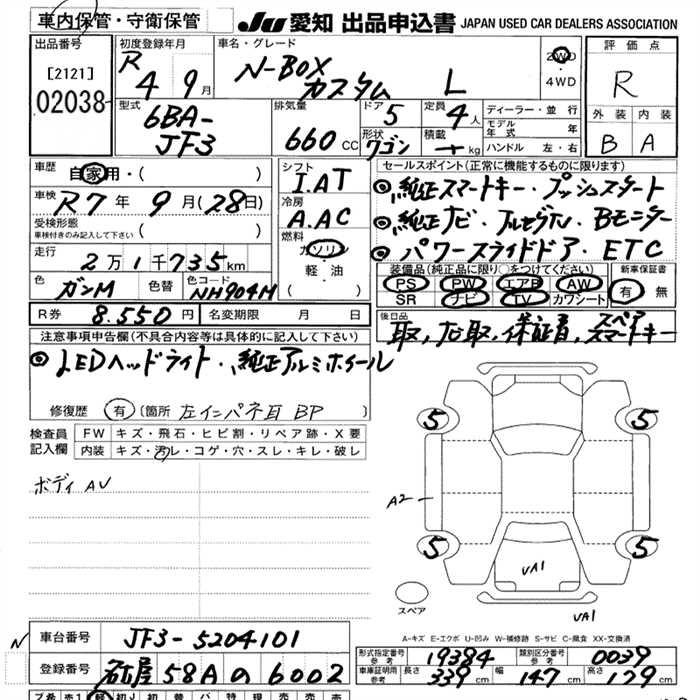 車内保管・守衛保管
JU 愛知 出品申込書 JAPAN USED CAR DEALERS ASSOCIATION
出品番号
[2121]
02038
初度登録年月
R 4 9月
車名・グレード
N-BOX カスタム L
2WD
・4WD
評価点
R
外装 内装
B A
型式
6BA-JF3
排気量
660 CC
ドア 5
形状 ワゴン
定員 4人
積載 - kg
ディーラー・並行
モデル年式 年
ハンドル 左・右
車歴 自家用・( )
車検 R7年 9月(28日)
受検形態
車検付きのみ記入して下さい ( )
走行 2万1千735km
色 ガンM 色替 色コード NH904M
シフト I.AT
冷房 A.AC
燃料 ガソリン
軽・油
セールスポイント(正常に機能するものに限ります)
◎ 純正スマートキー・プッシュスタート
◎ 純正ナビ・フルセグTV・Bモニター
◎ パワースライドドア・ETC
装備品(純正品に限り○をつけてください)
PS PW エアB AW
SR ナビ TV カワシート
新車保証書
有 無
R券 8.550円 名変期限 月 日
後日品
取,ナビ取,保証書,スペアスマートキー
注意事項申告欄(不具合内容等は具体的に記入して下さい)
◎ LEDヘッドライト・純正アルミホイール
修復歴 有 (箇所 左インパネ目 BP )
検査員記入欄
FW キズ・飛石・ヒビ割・リペア跡・X要
内装 キズ・汚レ・コゲ・穴・スレ・キレ・破レ
ボディ AV
5 5
A2
5 5
VA1
スペア
VA1
A-キズ E-エクボ U-凹み W-補修跡 S-サビ C-腐食 XX-交換済
N
車台番号 JF3-5204101
登録番号 名古屋 58A の 6002
形式指定番号 参考 19384 類別区分番号 参考 0039
車庫証明用 参考 長さ 339cm 幅 147cm 高さ 179cm